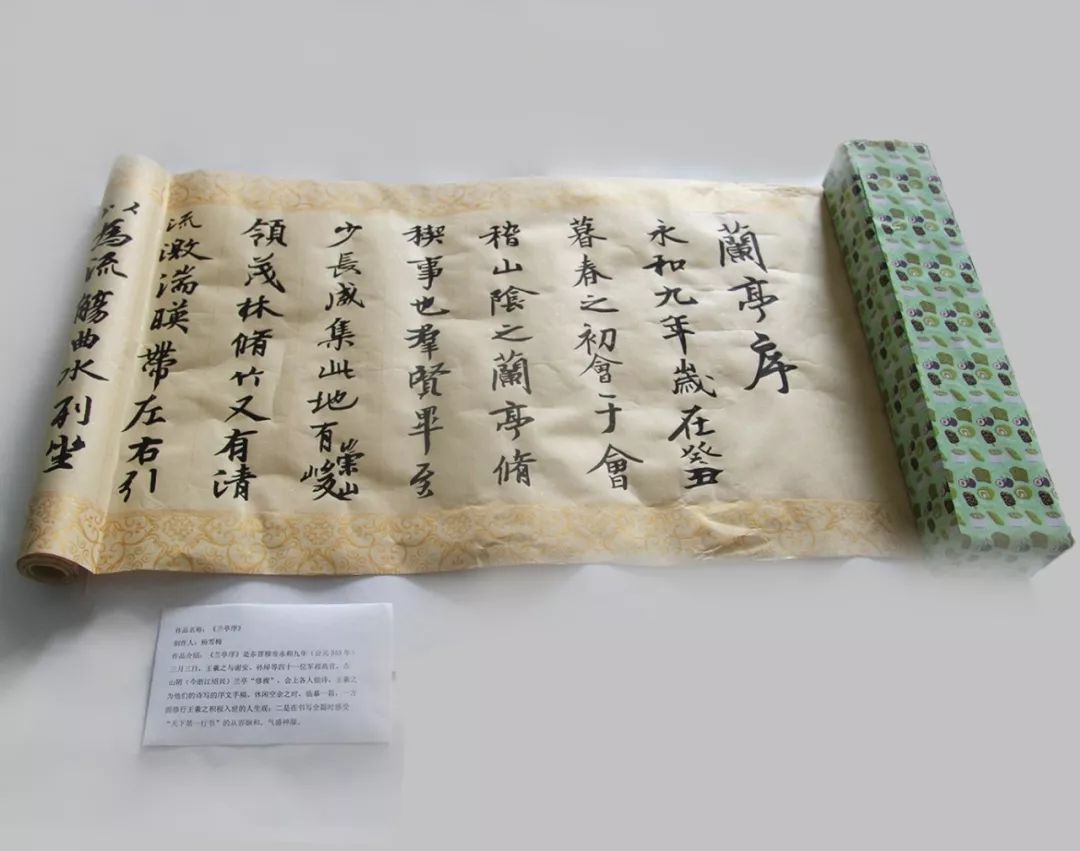 蘭亭序
永和九年歲在癸丑
暮春之初會于會
稽山陰之蘭亭脩
稧事也羣賢畢至
少長咸集此地有崇山峻
領茂林脩竹又有清
流激湍暎帶左右引
以為流觴曲水列坐
作品名称：《兰亭序》
制作人：杨雪梅
作品介绍：《兰亭序》是东晋穆帝永和九年（公元353年）
三月三日，王羲之与谢安、孙绰等四十一位军政高官，在
山阴（今浙江绍兴）兰亭“修禊”，会上各人做诗，王羲之
为他们的诗写的序文手稿。休闲空余之时，临摹一篇，一方
面修行王羲之积极入世的人生观；二是在书写全篇时感受
“天下第一行书”的从容娴和，气盛神凝。